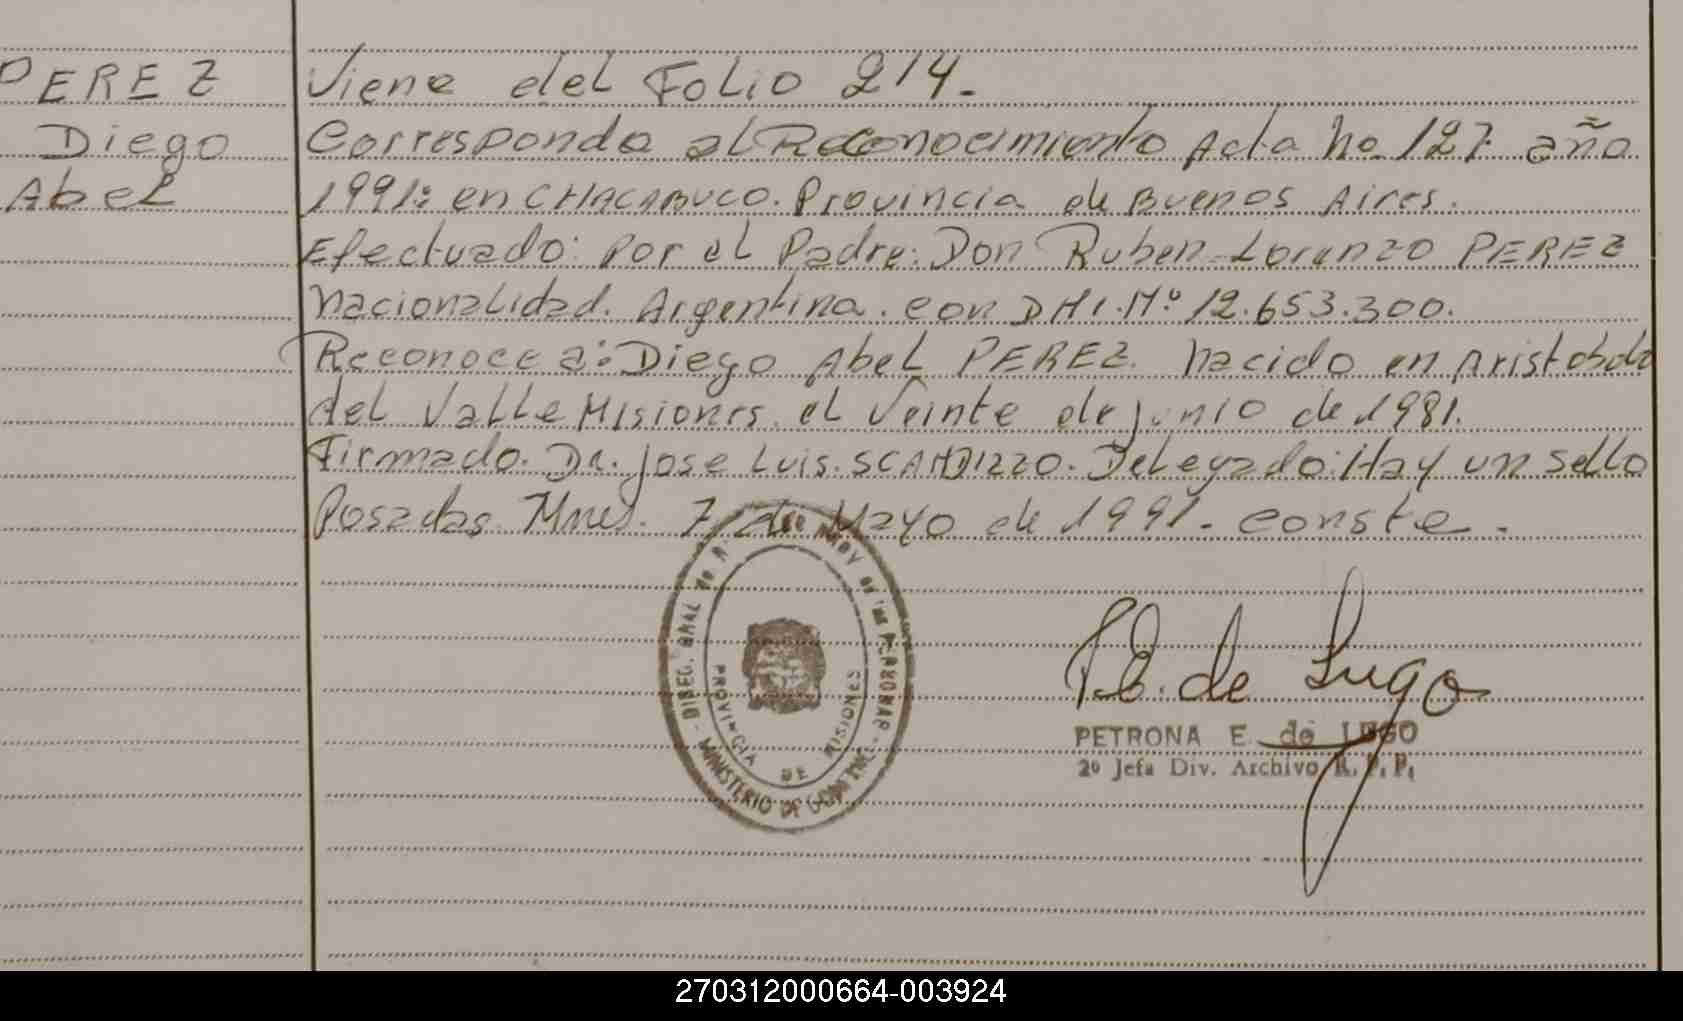 PEREZ
Diego
Abel
Viene del Folio 214.
Corresponde al Reconocimiento Acta No. 127. año
1991: en CHACABUCO. Provincia de Buenos Aires.
Efectuado: Por el Padre: Don Ruben Lorenzo PEREZ
Nacionalidad. Argentina. con DNI. Nº 12.653.300.
Reconoce a: Diego Abel PEREZ. Nacido en Aristobulo
del Valle Misiones. el Veinte de junio de 1981.
Firmado. Dr. Jose Luis. SCANDIZZO. Delegado: Hay un sello
Posadas Mnes. 7 de Mayo de 1991. conste.
PROVINCIA DE MISIONES
MINISTERIO DE
P. E. de Lugo
PETRONA E. de LUGO
2º Jefa Div. Archivo R. P. P.
270312000664-003924